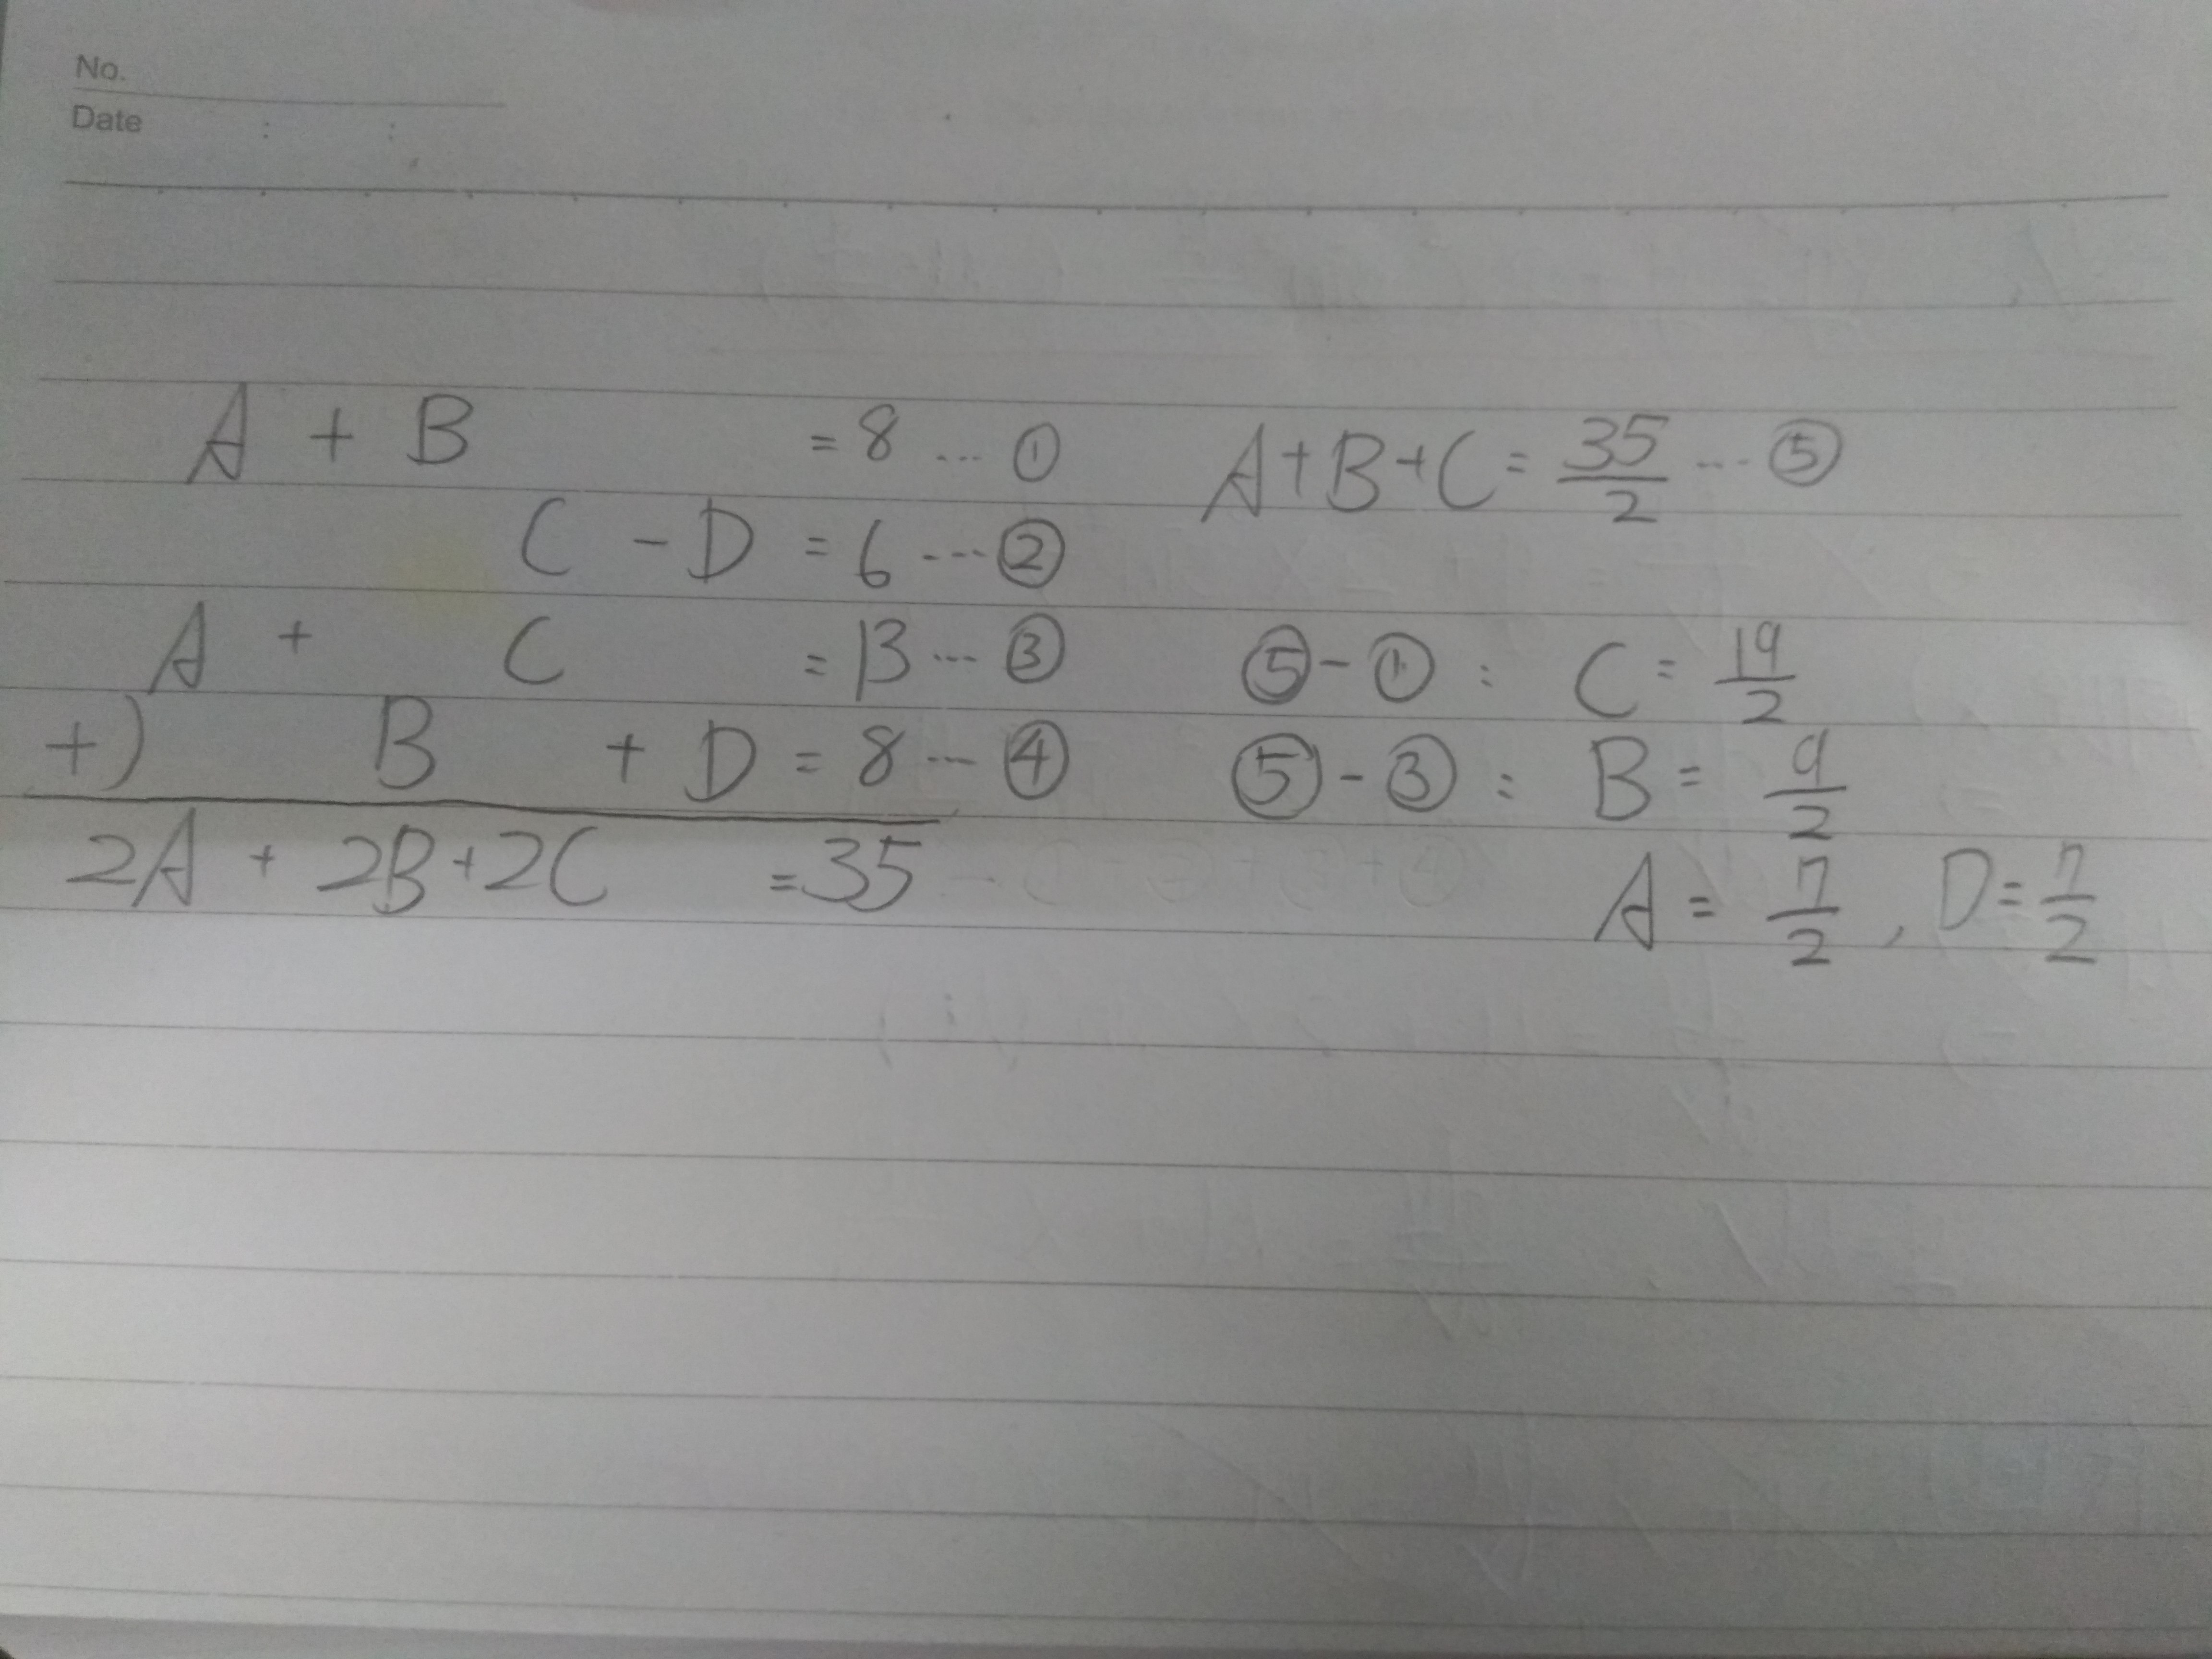 No.
Date : :
A + B = 8 ... ①
C - D = 6 ... ②
A + C = 13 ... ③
+) B + D = 8 ... ④
2A + 2B + 2C = 35
A+B+C = 35/2 ... ⑤
⑤ - ① : C = 19/2
⑤ - ③ : B = 9/2
A = 7/2 , D = 7/2